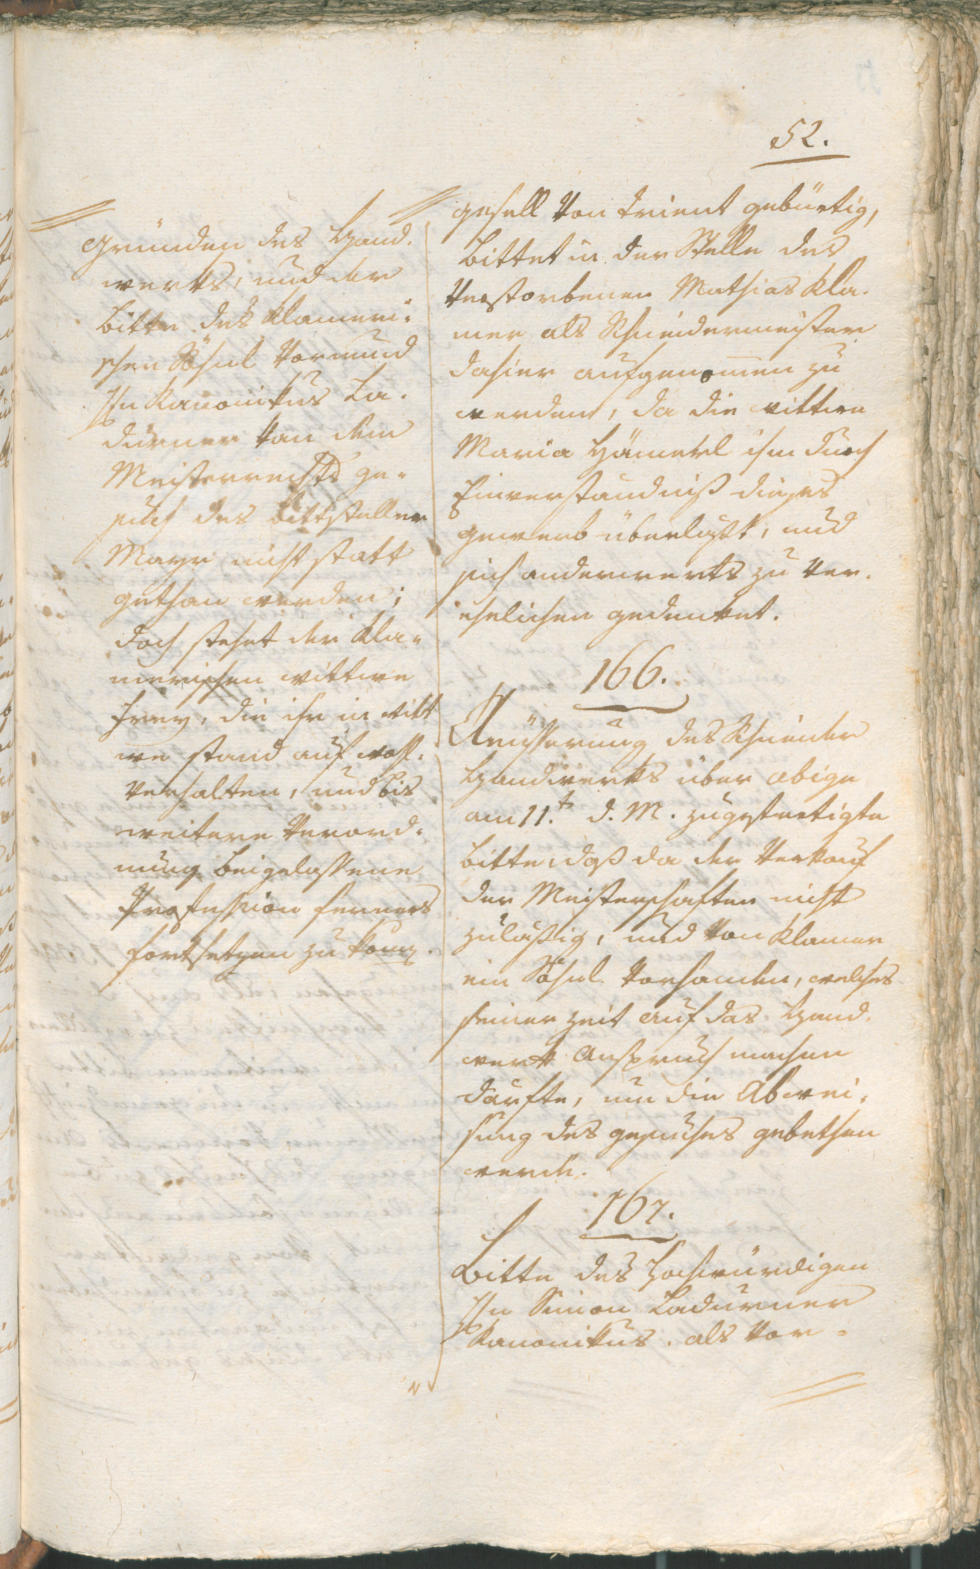 52.
gründen des Hand-
werks, und der
Bitte des Klameri-
schen Söhnl Vormund
Hn Kanonikus La-
durner von dem
Meisterrechts ge-
such des Bittstellers
Mayr nicht statt
gethan werden;
doch stehet der Kla-
merischen Wittwe
frey, die ihr in Witt
we stand auf wohl-
verhalten, und bis
weitere Verord-
nung beigelassene
Profession ferners
fortsetzen zu könn.
gesell von Trient gebürtig,
Bittet in der Stelle des
Verstorbenen Mathias Kla-
mer als Schneidermeister
dahier aufgenomen zu
werden, da die Wittwe
Maria Hämerl ihm durch
Einverständniß dieses
gewerb überlast, und
sich anderwerts zu ver-
ehelichen gedenket.
166.
Aeusserung des Schneider
Handwerks über obige
am 11.t d. M. zugefertigte
Bitte, daß da der Verkauf
der Meisterschaften nicht
zuläßig, und von Klamer
ein Söhnl vorhanden, welches
seiner Zeit auf das Hand-
werk Anspruch machen
därfte, um die Abwei-
sung des gesuches gebethen
werde.
167.
Bitte des Hochwürdigen
Hn Simon Ladurner
Kanonikus als Vor-